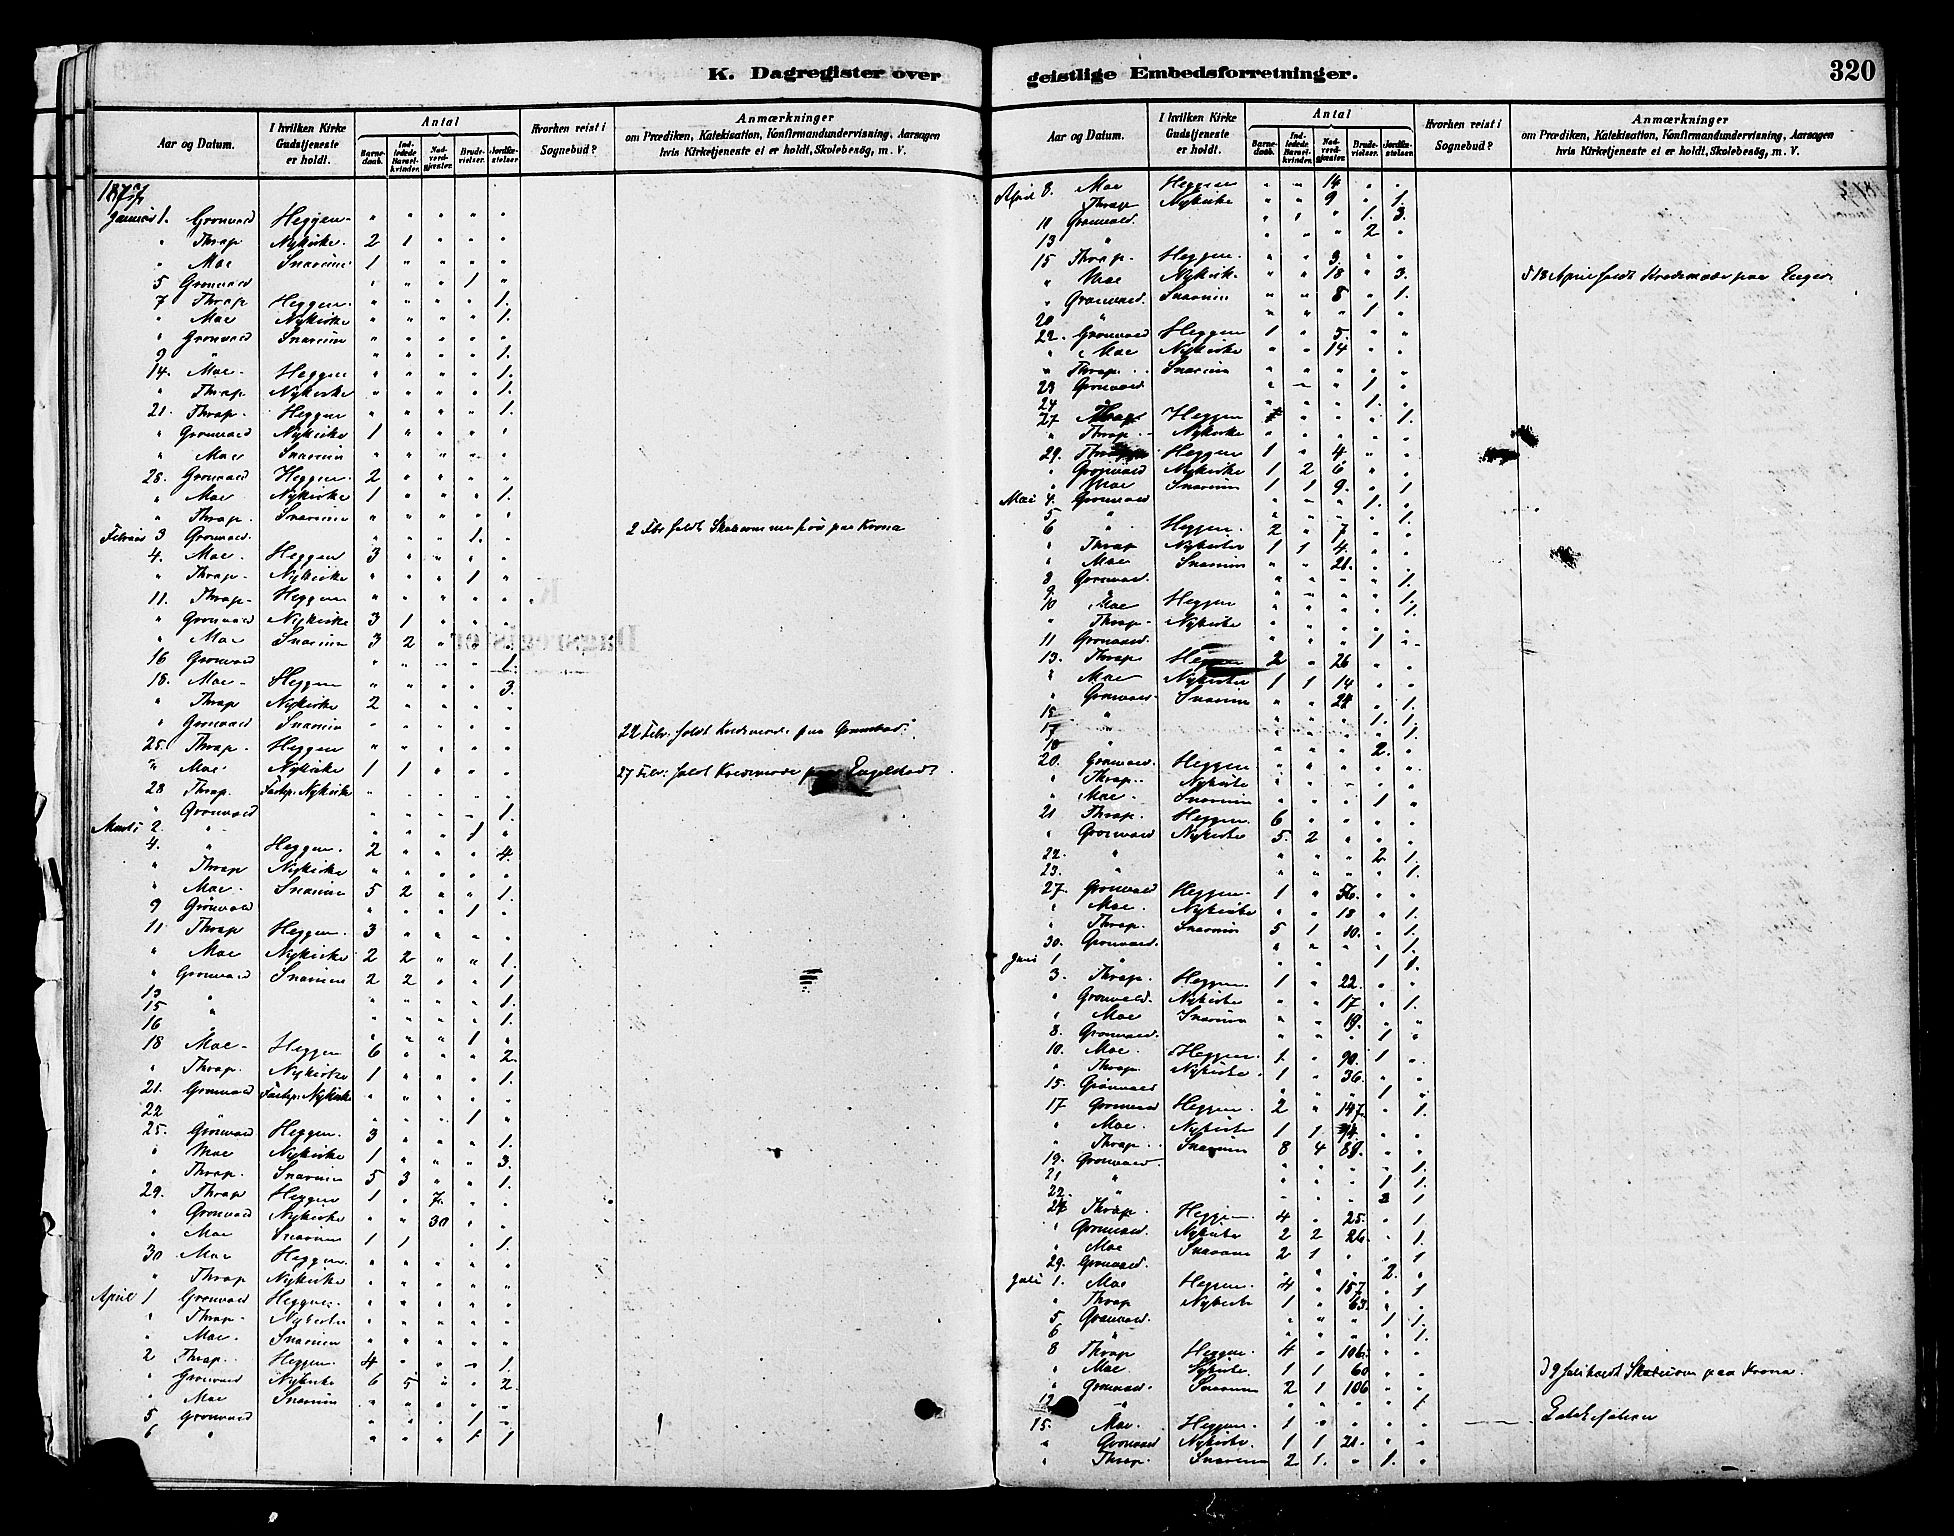 K. Dagregister over
Aar og Datum. I hvilken Kirke Gudstjeneste er holdt. Antal Barnedaab. Indledede Barselkvinder. Nadverdgjester. Brudevielser. Jordfæstelser. Hvorhen reist i Sognebud? Anmærkninger om Prædiken, Katekisation, Konfirmandundervisning, Aarsagen hvis Kirketjeneste ei er holdt, Skolebesøg, m. V.
1877
Januar 1. Grønvold Heggen " " " " "
" Thrap Nykirke. 2 1 " " "
" Moe Snarum 1 " " " "
5 Grønvold " " " 1 "
7 Thrap Heggen. " " " " 1.
" Moe Nykirke " " " " 1.
" Grønvold Snarum " " " " "
9 " " " " " 1.
14. Moe Heggen " " " " 1.
" Thrap Nykirke " " " " 1.
21. Thrap. Heggen " " " " 1.
" Grønvold Nykirke 1 " " " "
" Moe Snarum " " " " "
28. Grønvold Heggen 2 " " " "
" Moe Nykirke 1 " " " 1.
" Thrap. Snarum " " " " "
Februar 3 Grønvold. " " " 1. " 2 Febr holdt paa Krona
4. Moe. Heggen 3 " " " "
" Thrap. Nykirke " " " 1 "
11. Thrap. Heggen " " " " "
" Grønvold Nykirke 3 1 " " "
" Moe Snarum 3 2 " " "
16 Grønvold " " " " 1.
18. Moe Heggen " " " " 3.
" Thrap Nykirke 2 " " " "
" Grønvold Snarum " " " " " 22 Febr. holdt paa
25. Thrap. Heggen " " " " "
" Moe. Nykirke 1 1 " " " 27 Febr. holdt paa Engelstad
28 Thrap. Fastep. Nykirke " " " " "
" Grønvold " " " " 1.
Marts 2. " " " " 1 "
4. " Heggen. 2 " " " 4.
" Thrap Nykirke " " " " "
" Moe. Snarum 5 2 " " 1.
9 Grønvold " " " 1 "
11. Thrap Heggen. 3 " " " "
" Moe Nykirke 2 2 " " 1.
" Grønvold Snarum 2 2 " " 1
13 " " " " " 1.
15 " " " " " 1.
16 " " " " 1 "
18 Moe Heggen 6 " " " 2.
" Thrap. Nykirke 1 " " " 1.
21. Grønvold Fastep. Nykirke " " " " "
22 " " " 1 "
25. Grønvold Heggen. 3 " " " 1.
" Moe Nykirke 1 " " " 3.
" Thrap. Snarum 5 3 " " 1.
29. Thrap Heggen 1 " 7. " "
" Grønvold Nykirke " " 30 " "
" Moe Snarum 1 1 " " 1.
30 Moe Heggen. " " " " "
" Thrap Nykirke " " " " "
April 1 Grønvold Heggen. " " " " "
" Thrap. Nykirke " " " " "
" Moe. Snarum " " " " "
2 Thrap. Heggen. 4 " " " 1.
" Grønvold Nykirke 6 5 " " 2.
" Moe Snarum " " " " "
5 Grønvold " " " 1 "
6 " " " " 1 1
geistlige Embedsforretninger. 320
Aar og Datum. I hvilken Kirke Gudstjeneste er holdt. Antal Barnedaab. Indledede Barselkvinder. Nadverdgjester. Brudevielser. Jordfæstelser. Hvorhen reist i Sognebud? Anmærkninger om Prædiken, Katekisation, Konfirmandundervisning, Aarsagen hvis Kirketjeneste ei er holdt, Skolebesøg, m. V.
April 8. Moe Heggen " " 14 " "
" Thrap Nykirke " " 9 " 1.
11 Grønvold. " " " 1. 3.
13 " " " " 2 "
15 Thrap. Heggen. " " 3. " "
" Moe Nykirk. " " 18 " 3. d 13 April holdt paa
" Grønvold. Snarum " " 8 " 1.
20 " " " " 1. "
22. Grønvold Heggen 1 " 5. " "
" Moe Nykirke " " 14 " "
" Thrap. Snarum " " " " "
23 Grønvold " " " 1. "
24 " " " 1. "
27 Thrap Heggen " " " 1.
" Thrap. Nykirke " " " " "
29. Thrap Heggen 1 " 4 " "
" Grønvold Nykirke 1 2 6 " "
" Moe Snarum 1 1 9. " 1.
Mai 4. Grønvold " " " 1. "
5 " " " " " 1.
6 " Heggen. 2 " 7 " "
" Thrap Nykirke 1 1 4. " "
" Moe Snarum " " 21. " "
8 Grønvold. " " " " 1.
9 " " " " " 1.
10 Moe Heggen " " " " 1.
" Thrap. Nykirke " " " " "
11 Grønvold. " " " 1 "
13. Thrap. Heggen 2 " 26 " "
" Moe Nykirke 1 1 14 " "
" Grønvold. Snarum " " 24 " 1.
15 " " " " 1. 1.
17 " " " " " 1.
18 " " " " 2. "
20. Grønvold Heggen " " " " "
" Thrap. Nykirke " " " " "
" Moe. Snarum " " " 1 "
21 Thrap. Heggen. 6 " " " "
" Grønvold Nykirke 5. 2 " " "
22. " " " " 2 1.
23. " " " " 1.
27. Grønvold Heggen. 1 " 56. " "
" Moe. Nykirke " " 18 " 1.
" Thrap. Snarum 5 1 10. " 1.
30. Grønvold. " " " " 1.
Juni 1 " " " " 1 1.
3. Thrap. Heggen 1 " 22. " "
" Grønvold. Nykirke " " 17. " 1.
" Moe Snarum " " 19. " "
8. Grønvold " " " 1 "
10. Moe. Heggen. 1. " 90. 1 "
" Thrap. Nykirke. 1 " 36. " "
15. Grønvold " " " 1 "
17 Grønvold Heggen. 2 " 147. " 1.
" Moe. Nykirke 1 1. " "
" Thrap. Snarum 8 4 88. " "
19. Grønvold. " " " " 1.
21 " " " " 1 1.
22. " " " " 1
24 Thrap. Heggen. 4 " 25. " 1
" Grønvold. Nykirke 2 2 26. " 1.
" Moe Snarum 2 1 " " 1
29. Grønvold. " " " 2. "
Juli 1. Moe Heggen. 4 " 157. " 1
" Thrap Nykirke 1 " 63. " "
5. Grønvold. " " " 1 1.
6 " " " " " 1.
8 Thrap Heggen. 4 " 106. " "
" Moe Nykirke. 1 1 60 " " d 9 Juli holdt paa Krona.
" Grønvold. Snarum 2 1 106 " "
12 " " " " " 1
15. Moe. Heggen. 1 " " " "
" Grønvold Nykirke. 1 1 21. " "
" Thrap. Snarum 2 1. " 1. "